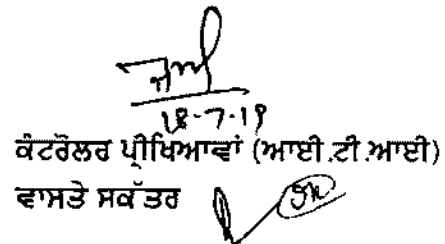 18-7-19
ਕੰਟਰੋਲਰ ਪ੍ਰੀਖਿਆਵਾਂ (ਆਈ.ਟੀ.ਆਈ)
ਵਾਸਤੇ ਸਕੱਤਰ